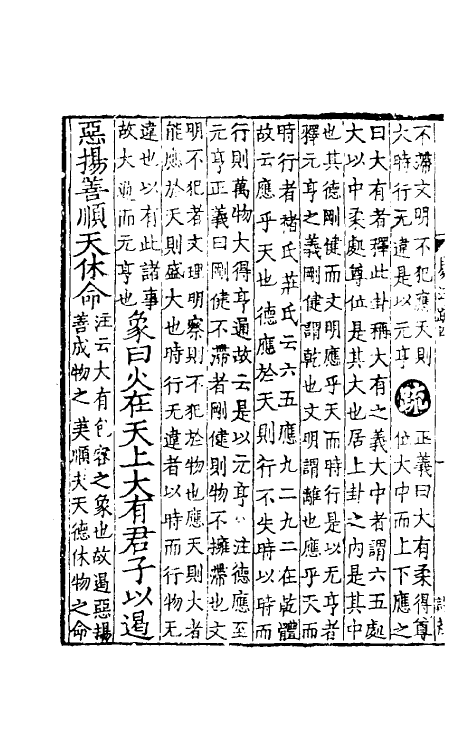 不滯文明不犯應天則
大時行无違是以元亨
疏
正義曰大有柔得尊
位大中而上下應之
曰大有者釋此卦稱大有之義大中者謂六五處
大以中柔處尊位是其大也居上卦之內是其中
也其德剛健而文明應乎天而時行是以元亨者
釋元亨之義剛健謂乾也文明謂離也應乎天而
時行者褚氏莊氏云六五應九二九二在乾體
故云應乎天也德應於天則行不失時以時而
行則萬物大得亨通故云是以元亨注德應至
元亨正義曰剛健不滯者剛健則物不擁滯也文
明不犯者文理明察則不犯於物也應天則大者
能應於天則盛大也時行无違者以時而行物无
違也以有此諸事
故大通而元亨也
象曰火在天上大有君子以遏
惡揚善順天休命
注云大有包容之象也故遏惡揚
善成物之美順夫天德休物之命